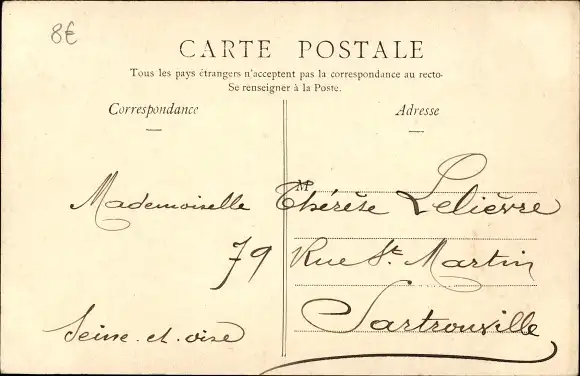 8€
CARTE POSTALE
Tous les pays étrangers n'acceptent pas la correspondance au recto-
Se renseigner à la Poste.
Correspondance
Adresse
M
Mademoiselle Thérèse Lelièvre
79 Rue St. Martin
Sartrouville
Seine-et-oise